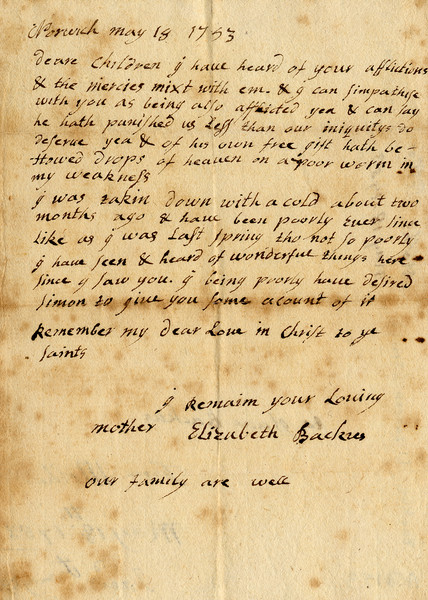 Norwich may 18 1753
deare Children I have heard of your afflictions
& the mercies mixt with em. & I can simpathise
with you as being also afflicted yea & can say
he hath punished us Less than our iniquitys do
deserve yea & of his own free gift hath be-
stowed drops of heaven on a poor worm in
my weakness
I was takin down with a cold about two
months ago & have been poorly Ever since
Like as I was Last spring tho not so poorly
I have seen & heard of wonderful things here
since I saw you. I being poorly have desired
simon to give you some acount of it
Remember my dear Love in Christ to ye
saints
I Remaim your Loving
mother Elizabeth Backus
our family are well